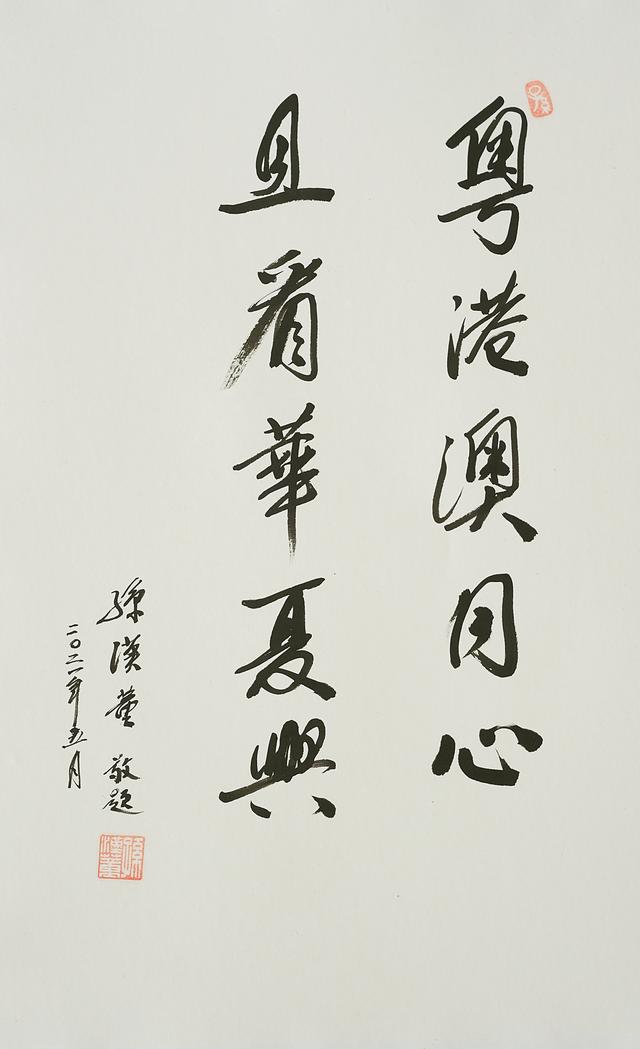 粵港澳同心
且看華夏興
孫漢董 敬題
二〇二一年五月